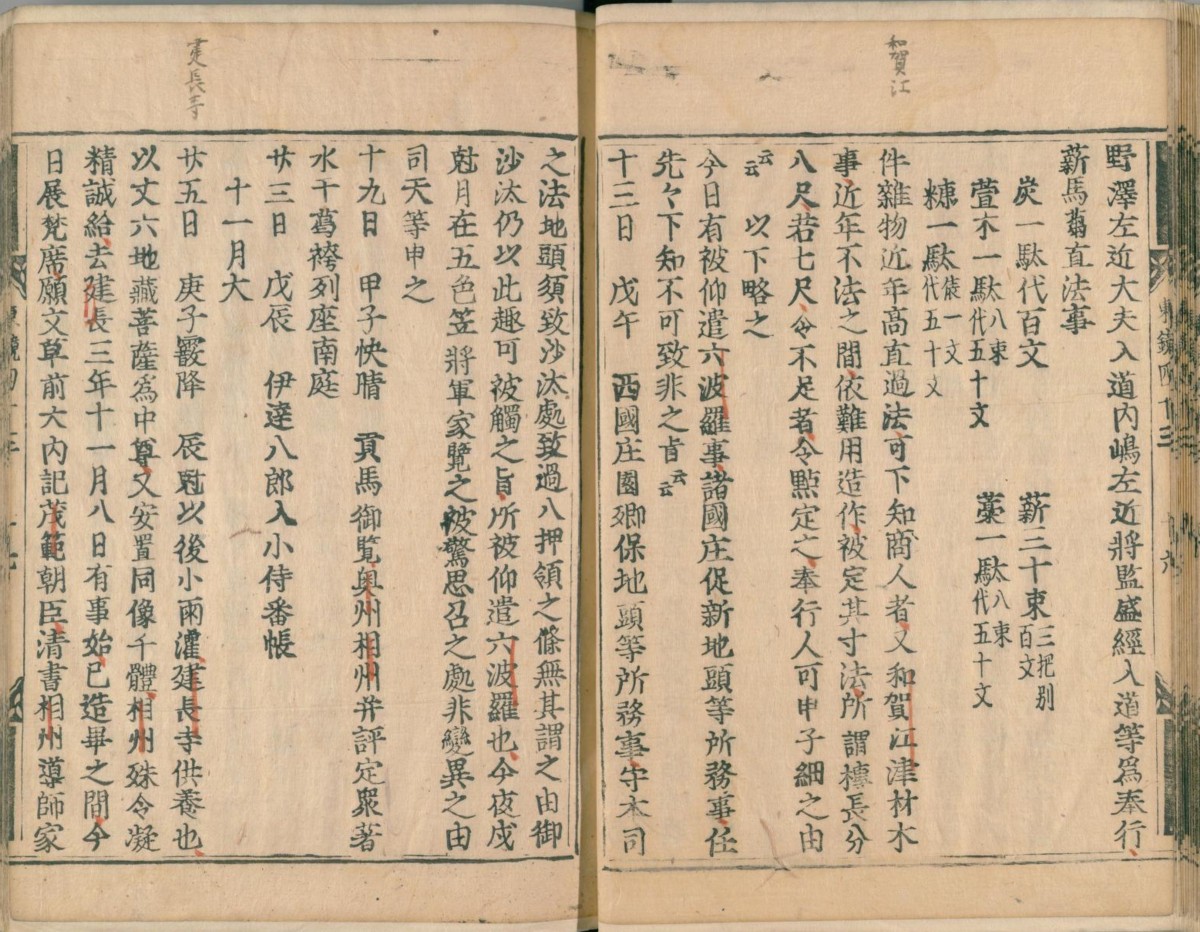 和賀江
野澤左近大夫入道内嶋左近將監盛經入道等爲奉行
薪馬蒭直法事
炭一駄代百文 薪三十束三把別百文
萱木一駄八束代五十文 藁一駄八束代五十文
糠一駄俵一文代五十文
件雜物近年高直過法可下知商人者又和賀江津材木
事近年不法之間依難用造作被定其寸法所謂榑長分
八尺若七尺令不足者令點定之奉行人可申子細之由
云云 以下略之
今日有被仰遣六波羅事諸國庄促新地頭等所務事任
先々下知不可致非之旨云云
十三日 戊午 西國庄園郷保地頭等所務事守本司
東鑑四十三
建長寺
之法地頭須致沙汰處致過八押領之條無其謂之由御
沙汰仍以此趣可被觸之旨所被仰遣六波羅也今夜戌
尅月在五色笠將軍家覽之被驚思召之處非變異之由
司天等申之
十九日 甲子快晴 貢馬御覽奥州相州并評定衆著
水干葛袴列座南庭
廿三日 戊辰 伊達八郎入小侍番帳
十一月大
廿五日 庚子霰降 辰尅以後小雨灌建長寺供養也
以丈六地藏菩薩爲中尊又安置同像千體相州殊令凝
精誠給去建長三年十一月八日有事始已造畢之間今
日展梵席願文草前大内記茂範朝臣清書相州導師家